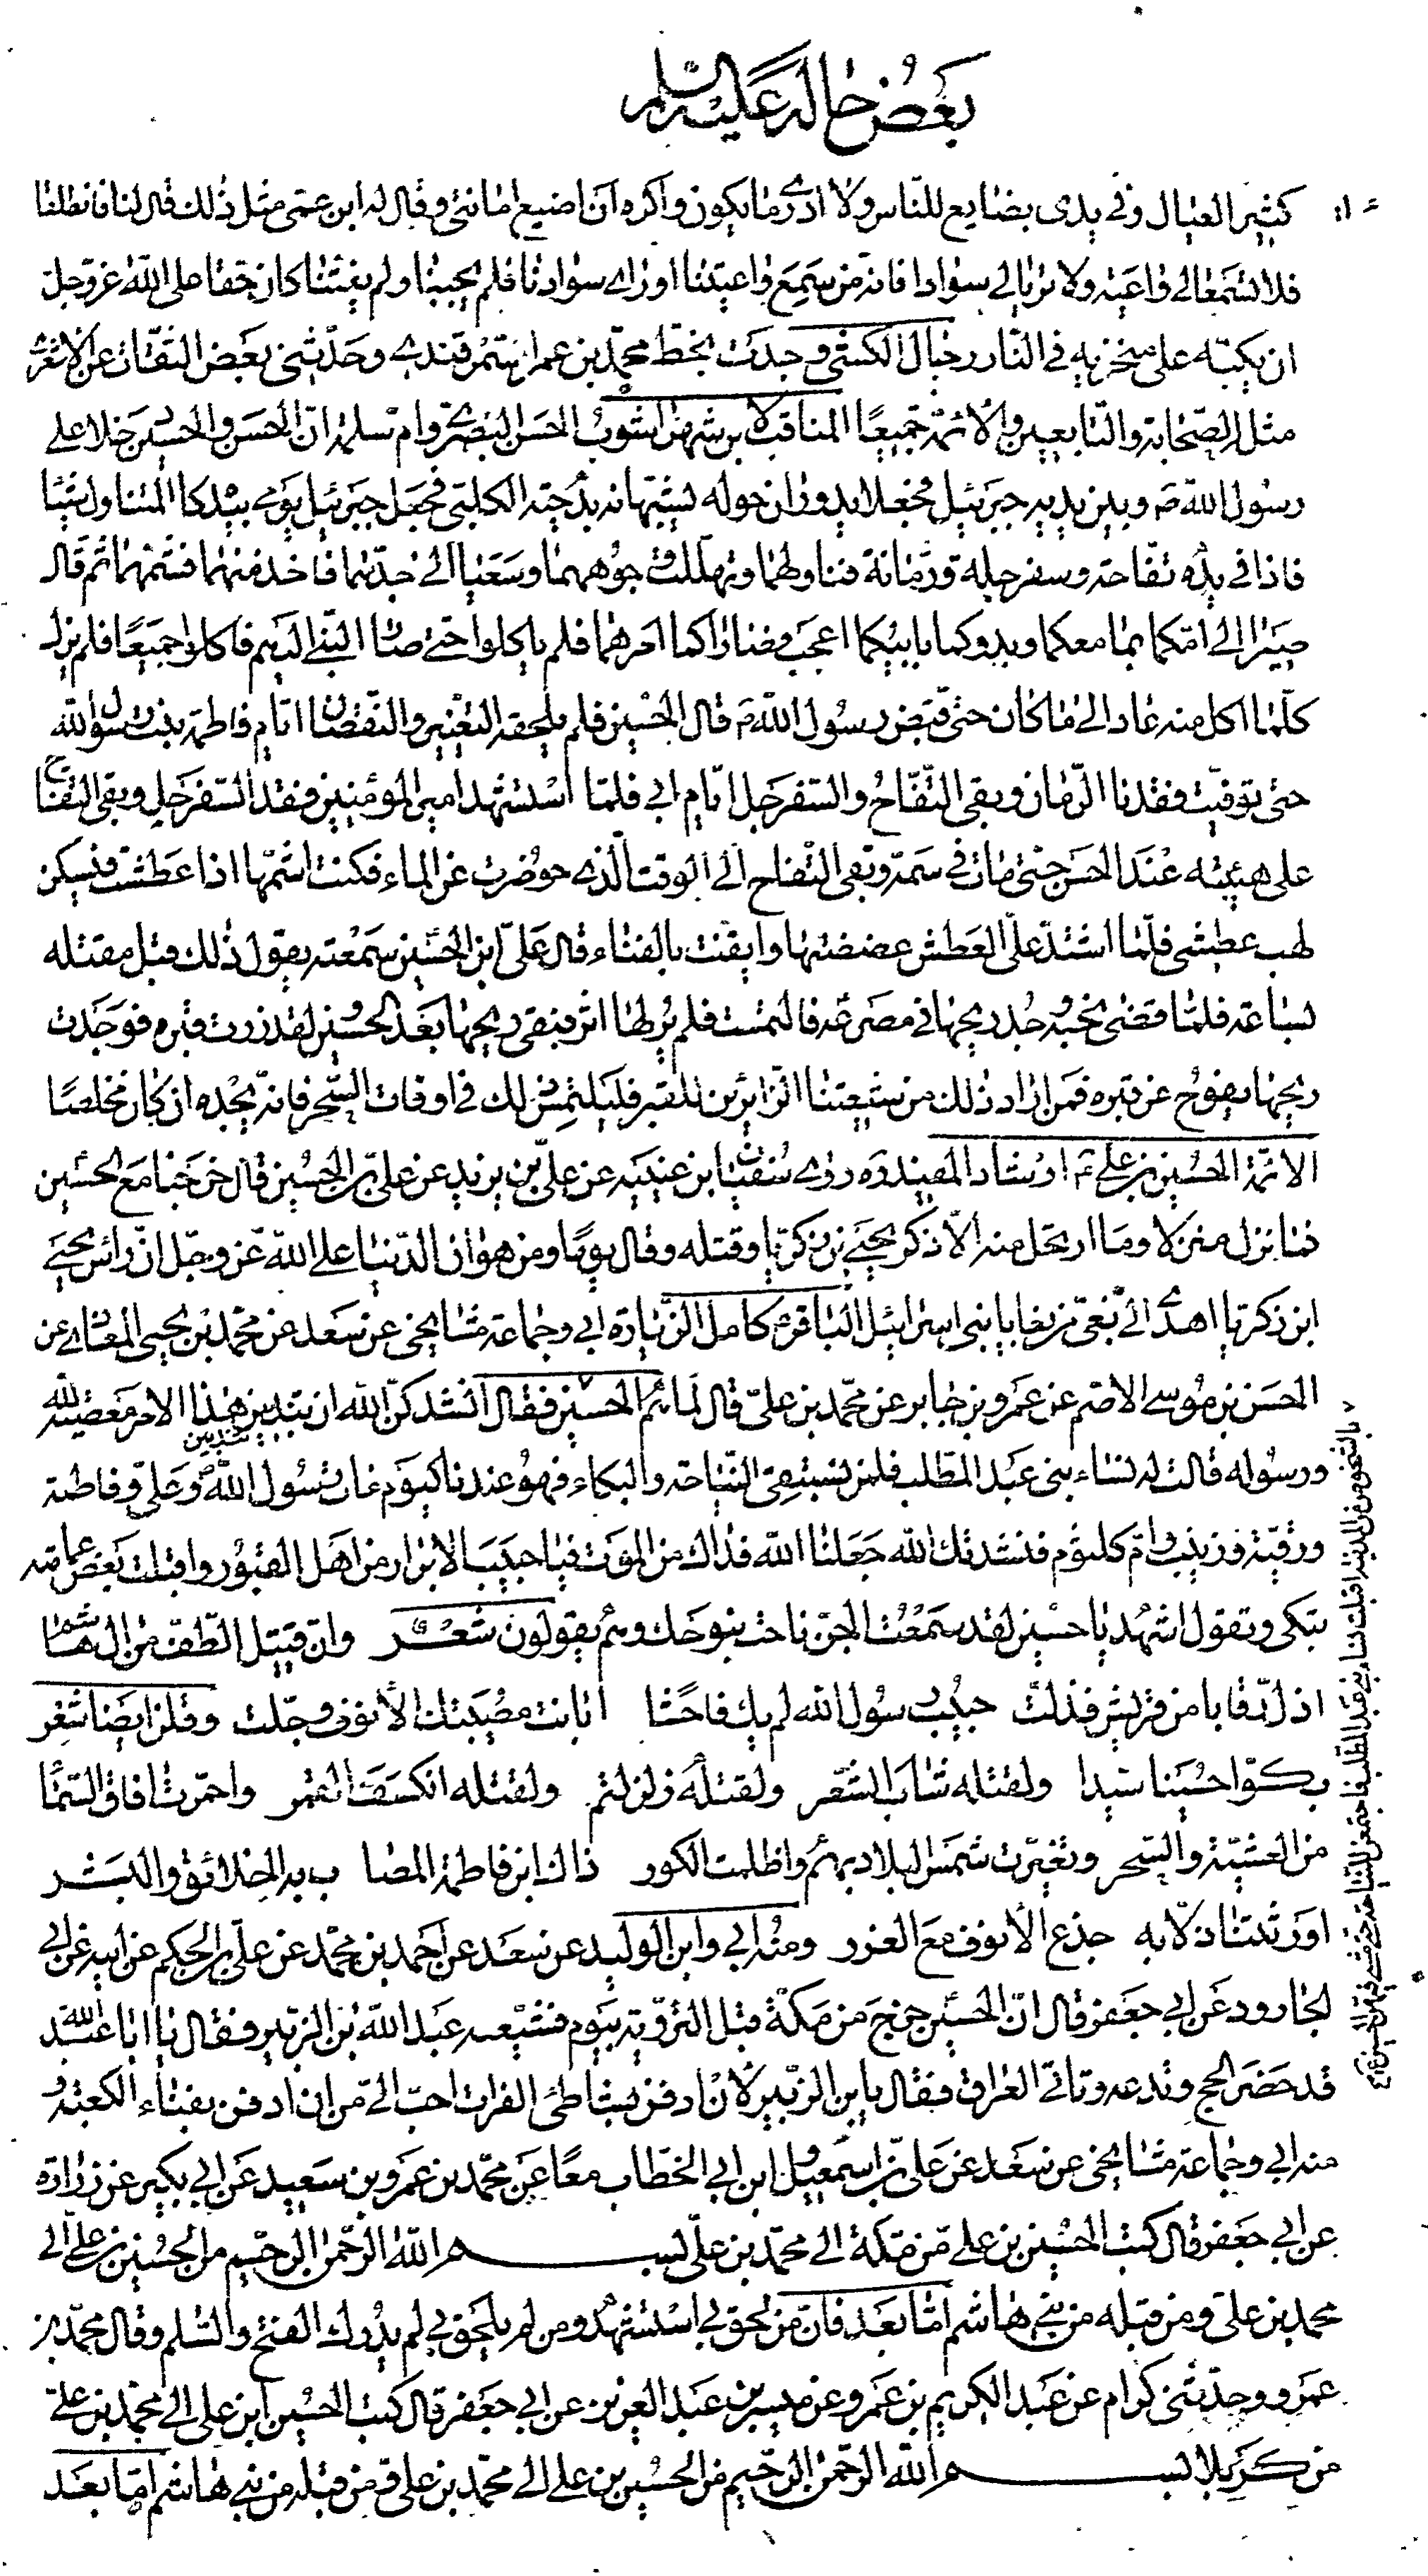 بعض حاله عليه السلم
كثير العيال وفي يدي بضايع للناس ولا ادري ما يكون واكره ان اضيع امانتي وقال له ابن عمي مثل ذلك قال لنا فانطلقا
فلا تسمعا لي واعية ولا تريا لي سوادا فانه من سمع واعيتنا او راى سوادنا فلم يجيبنا ولم يغثنا كان حقا على الله عز وجل
ان يكبه على منخريه في النار رجال الكشي وجدت بخط محمد بن عمر السمرقندي وحدثني بعض الثقات عن الاشعري
مثل الصحابة والتابعين والائمة جميعًا المناقب لابن شهراشوب الحسن البصري وام سلمة ان الحسن والحسين دخلا على
رسول الله ص وبين يديه جبرئيل فجعلا يدوران حوله لشبهانه بدحية الكلبي فجعل جبرئيل يومي بيده كالمتناول شيئًا
فاذا في يده تفاحة وسفرجلة ورمانة فناولهما وتهللت وجوههما وسعيا الى جدهما فاخذ منهما فشمهما ثم قال
صيرا الى امكما بما معكما وبدوكما بابيكما اعجب فصارا كما امرهما فلم ياكلوا حتى صار النبي اليهم فاكلوا جميعًا فلم يزل
كلما اكل منه عاد الى ما كان حتى قبض رسول الله ص قال الحسين فلم يلحقه التغيير والنقصان ايام فاطمة بنت رسول الله
حتى توفيت فقدنا الرمان وبقي التفاح والسفرجل ايام ابي فلما استشهد امير المؤمنين فقد السفرجل وبقي التفاح
على هيئته عند الحسن حتى مات في سمه وبقي التفاح الى الوقت الذي حوصرت عن الماء فكنت اشمها اذا عطشت فتسكن
لهب عطشي فلما اشتد علي العطش عضضتها وايقنت بالفناء قال علي ابن الحسين سمعته يقول ذلك قبل مقتله
بساعة فلما قضى نحبه وجد ريحها في مصرعه فالتمست فلم ير لها اثر فبقي ريحها بعد الحسين لقد زرت قبره فوجدت
ريحها يفوح عن قبره فمن اراد ذلك من شيعتنا الزائرين للقبر فليلتمس ذلك في اوقات السحر فانه يجده ان كان مخلصًا
الائمة الحسين بن علي ع ارشاد المفيد ره روى سفيان بن عيينه عن علي بن يزيد عن علي بن الحسين قال خرجنا مع الحسين
فما نزل منزلا وما ارتحل منه الا ذكر يحيى بن زكريا وقتله وقال يومًا ومن هوان الدنيا على الله عز وجل ان راس يحيى
ابن زكريا اهدي الى بغي من بغايا بني اسرائيل الباقر ع كامل الزيارة ابي وجماعة مشايخي عن سعد عن محمد بن يحيى المعاذي عن
الحسن بن موسى الاصم عن عمرو بن جابر عن محمد بن علي قال لما هم الحسين فقال انشدكن الله ان تبدين هذا الامر معصية لله
ورسوله قالت له نساء بني عبد المطلب فلمن نستبقي النياحة والبكاء فهو عندنا كيوم مات رسول الله ص وعلي وفاطمة
ورقية وزينب وام كلثوم فننشدك الله جعلنا الله فداك من الموت فيا حبيب الابرار من اهل القبور واقبلت بعض عماته
تبكي وتقول اشهد يا حسين لقد سمعت الجن ناحت بنوحك وهم يقولون شعـر وان قتيل الطف من ال هاشم
اذل رقابا من قريش فذلت حبيب رسول الله لم يك فاحشا ابانت مصيبتك الانوف وجلت وقلن ايضا شعر
بكـوا حسينا سيدا ولقتله شاب الشعر ولقتله زلزلتم ولقتله انكسف القمر واحمرت افاق السما
من العشية والسحر وتغيرت شمس البلاد بهم واظلمت الكور ذاك ابن فاطمة المصا ب به الخلائق والبشر
اورثتنا ذلا به جدع الانوف مع الغرر ومنه ابي وابن الوليد عن سعد عن احمد بن محمد عن علي بن الحكم عن ابيه عن ابي
الجارود عن ابي جعفر قال ان الحسين خرج من مكة قبل التروية بيوم فشيعه عبد الله بن الزبير فقال يا ابا عبد الله
قد حضر الحج وتدعه وتاتي العراق فقال يا بن الزبير لان ادفن بشاطئ الفرات احب الي من ان ادفن بفناء الكعبة و
منه ابي وجماعة مشايخي عن سعد عن علي بن اسمعيل وابن ابي الخطاب معًا عن محمد بن عمرو بن سعيد عن ابي بكير عن زرارة
عن ابي جعفر قال كتب الحسين بن علي من مكة الى محمد بن علي بســـم الله الرحمن الرحيم من الحسين بن علي الى
محمد بن علي ومن قبله من بني هاشم اما بعد فان من لحق بي استشهد ومن لم يلحق بي لم يدرك الفتح والسلم وقال محمد بن
عمرو وحدثني كرام عن عبد الكريم بن عمرو عن ميسر بن عبد العزيز عن ابي جعفر قال كتب الحسين ابن علي الى محمد بن علي
من كربلا بســـم الله الرحمن الرحيم من الحسين بن علي الى محمد بن علي ومن قبله من بني هاشم اما بعد
بالشخوص من المدينة اقبلت نساء بني عبد المطلب فاجتمعن للنياحة حتى مشى فيهن الحسين ع